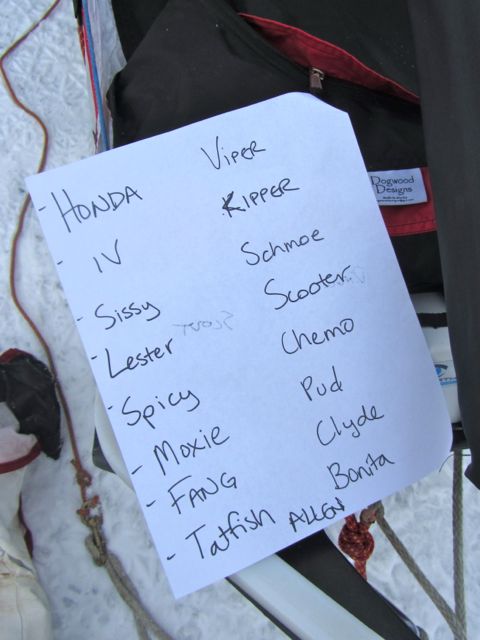 - HONDA Viper
- IV KIPPER
- Sissy Schmoe
- Lester Scooter
- Spicy Chemo
- Moxie Pud
- FANG Clyde
- Tatfish ALLEN Bonita
Dogwood
Designs